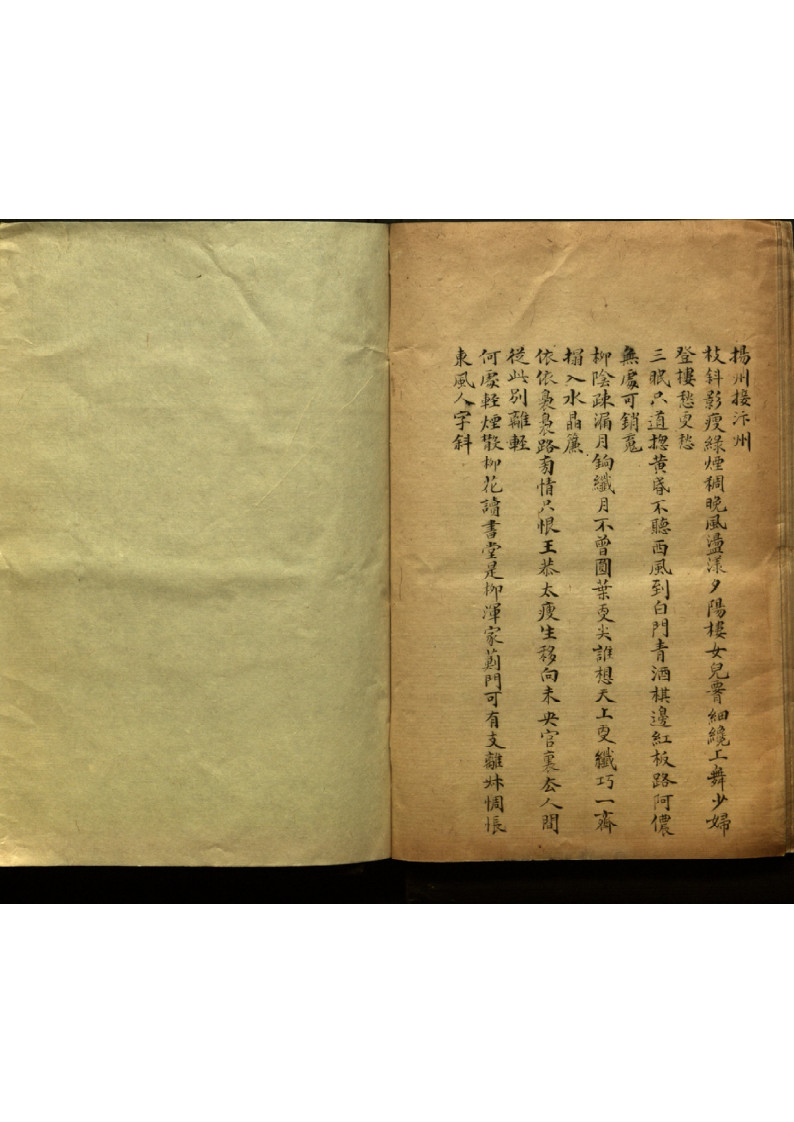 揚州接汴州
枝斜影瘦綠煙稠晚風盪漾夕陽樓女兒要細纔工舞少婦
登樓愁更愁
三眠只道揔黃昏不聽西風到白門青酒棋邊紅板路阿儂
無處可銷䰟
柳陰疎漏月鉤纖月不曾圓葉更尖誰想天上更纖巧一齊
搨入水晶簾
依依裊裊路有情只恨王恭太瘦生移向未央宮裏去人間
從此別離輕
何處輕煙散柳花讀書堂是柳渾家薊門可有支離妹惆悵
東風人字斜